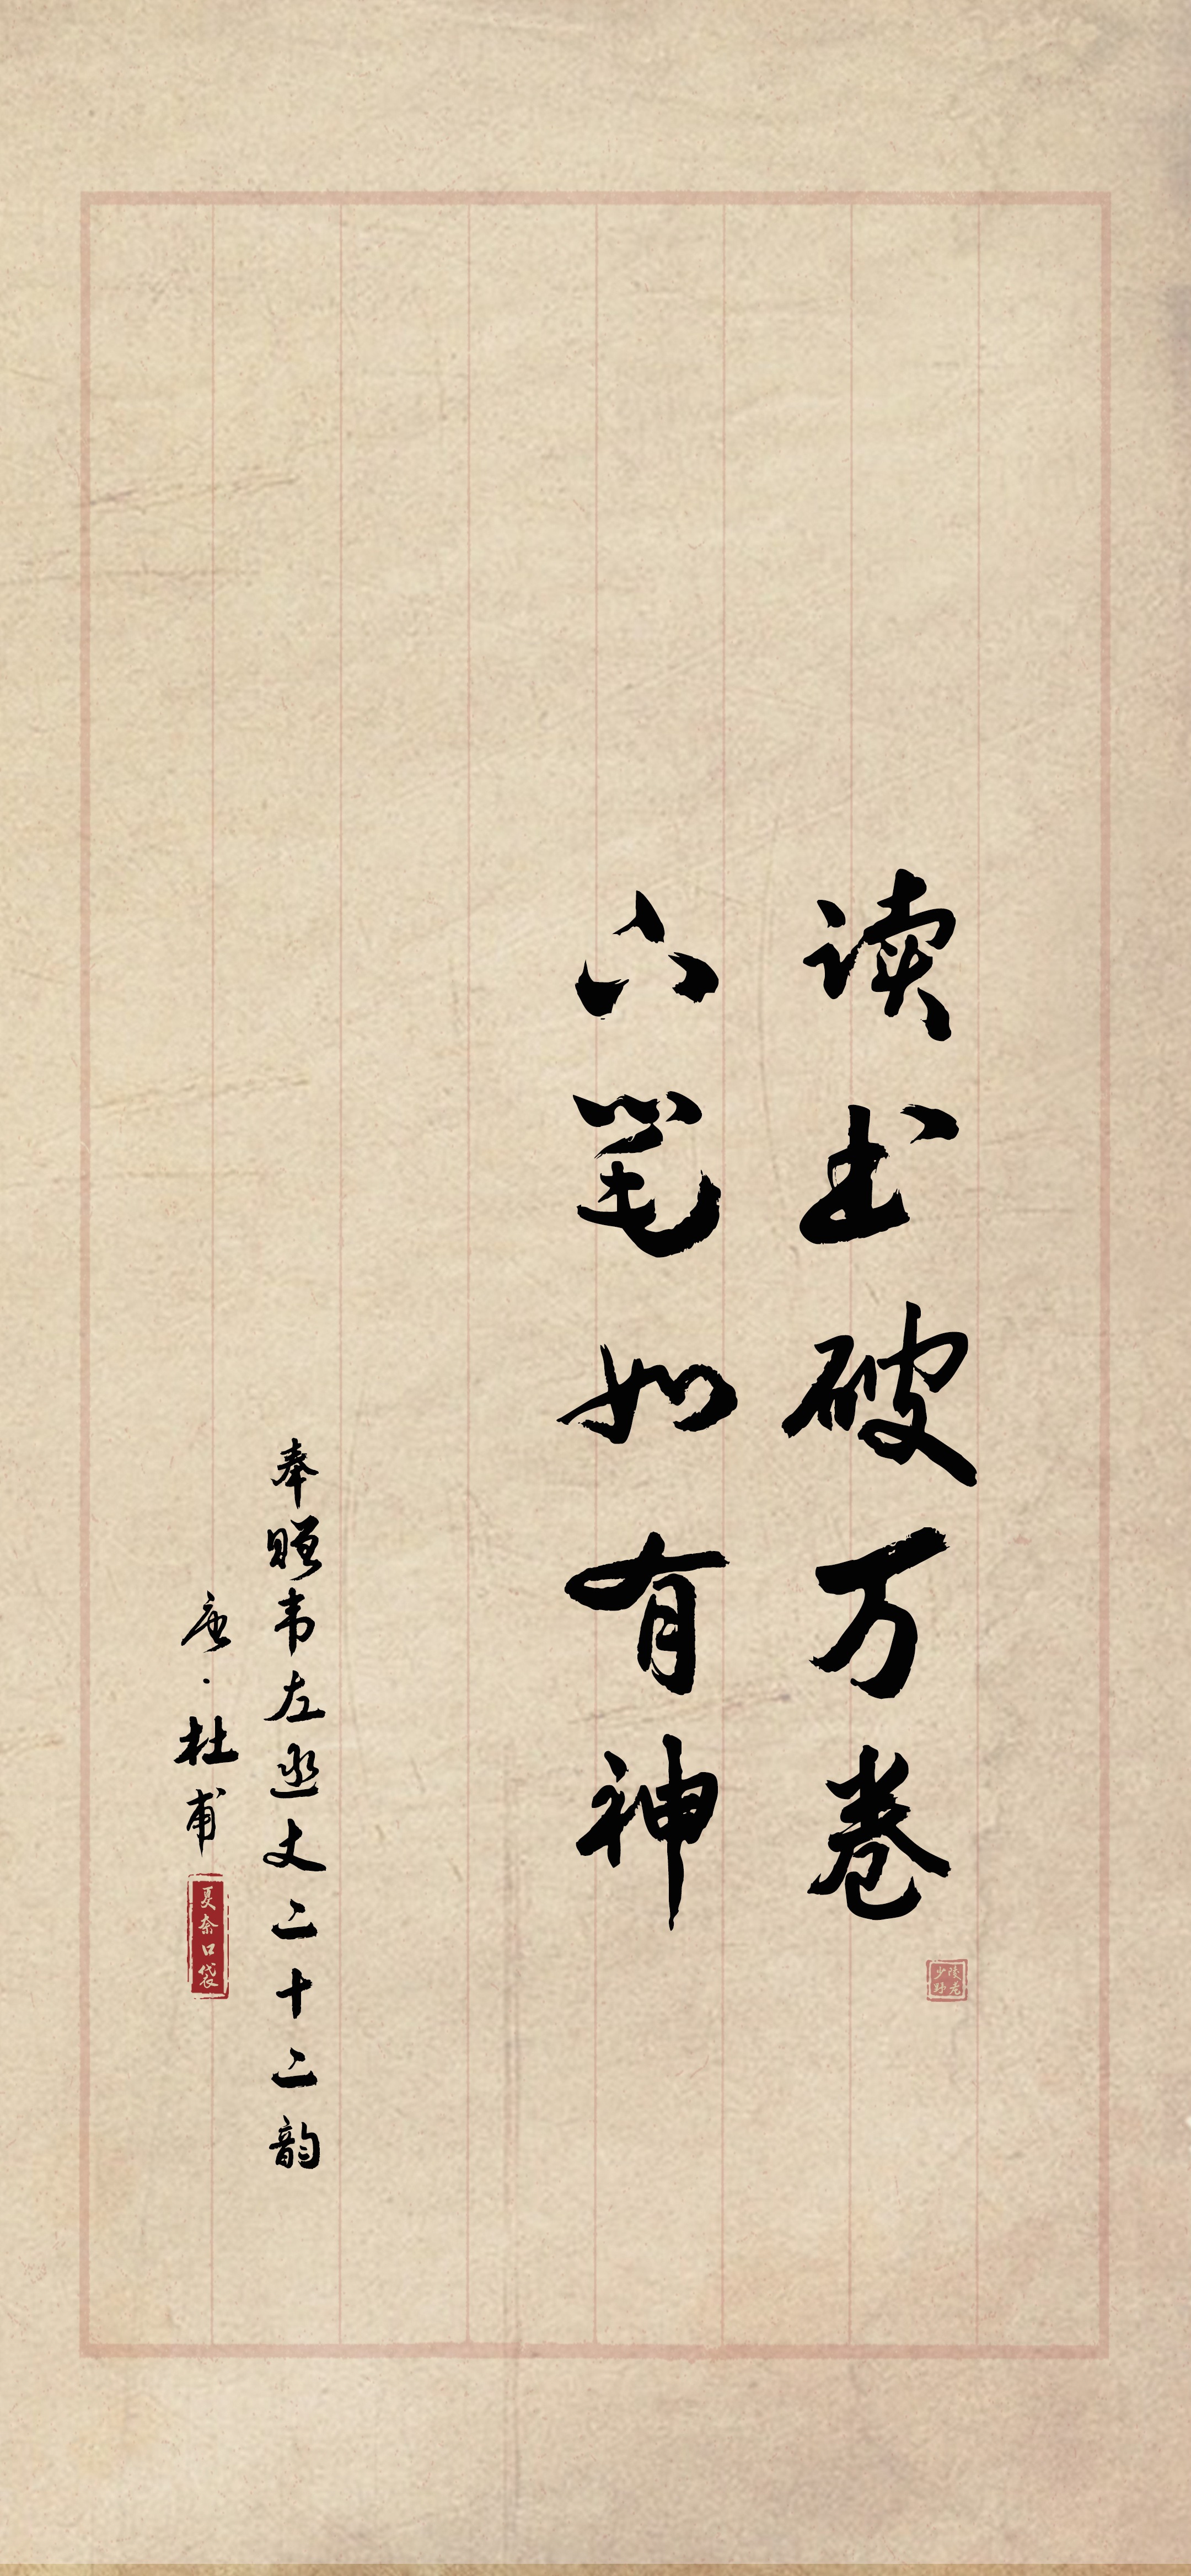 读书破万卷
下笔如有神
少陵野老
奉赠韦左丞丈二十二韵
唐·杜甫